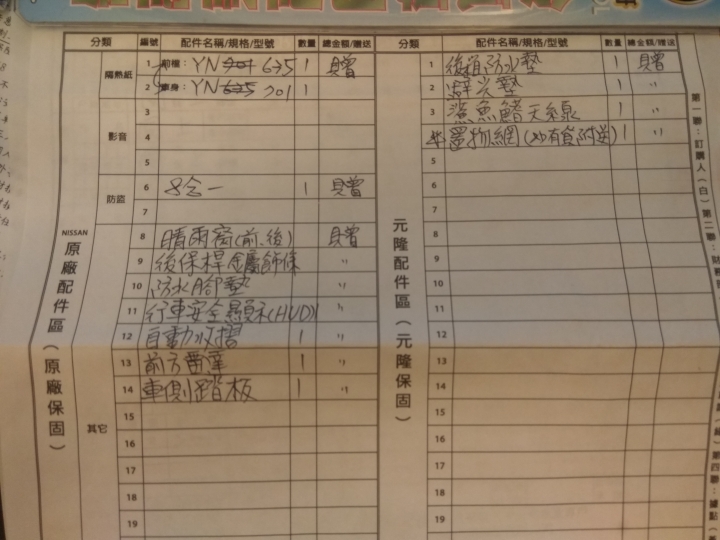 分類 編號 配件名稱/規格/型號 數量 總金額/贈送
隔熱紙 1 前檔：YN 675 1 贈
2 車身：YN 701 1
影音 3
4
5
防盜 6 8合一 1 贈
7
NISSAN 原廠配件區（原廠保固）
其它
8 晴雨窗(前、後) 贈
9 後保桿金屬飾條 〃
10 防水腳墊 〃
11 行車安全顯示(HUD) 1 〃
12 自動收摺 1 〃
13 前方雷達 1 〃
14 車側踏板 1 〃
15
16
17
18
19
分類 編號 配件名稱/規格/型號 數量 總金額/贈送
元隆配件區（元隆保固）
1 後箱防水墊 1 贈
2 避光墊 1 〃
3 鯊魚鰭天線 1 〃
4 置物網(如有貨附送) 1 〃
5
6
7
8
9
10
11
12
13
14
15
16
17
18
19
第一聯：訂購人（白）第二聯：財務